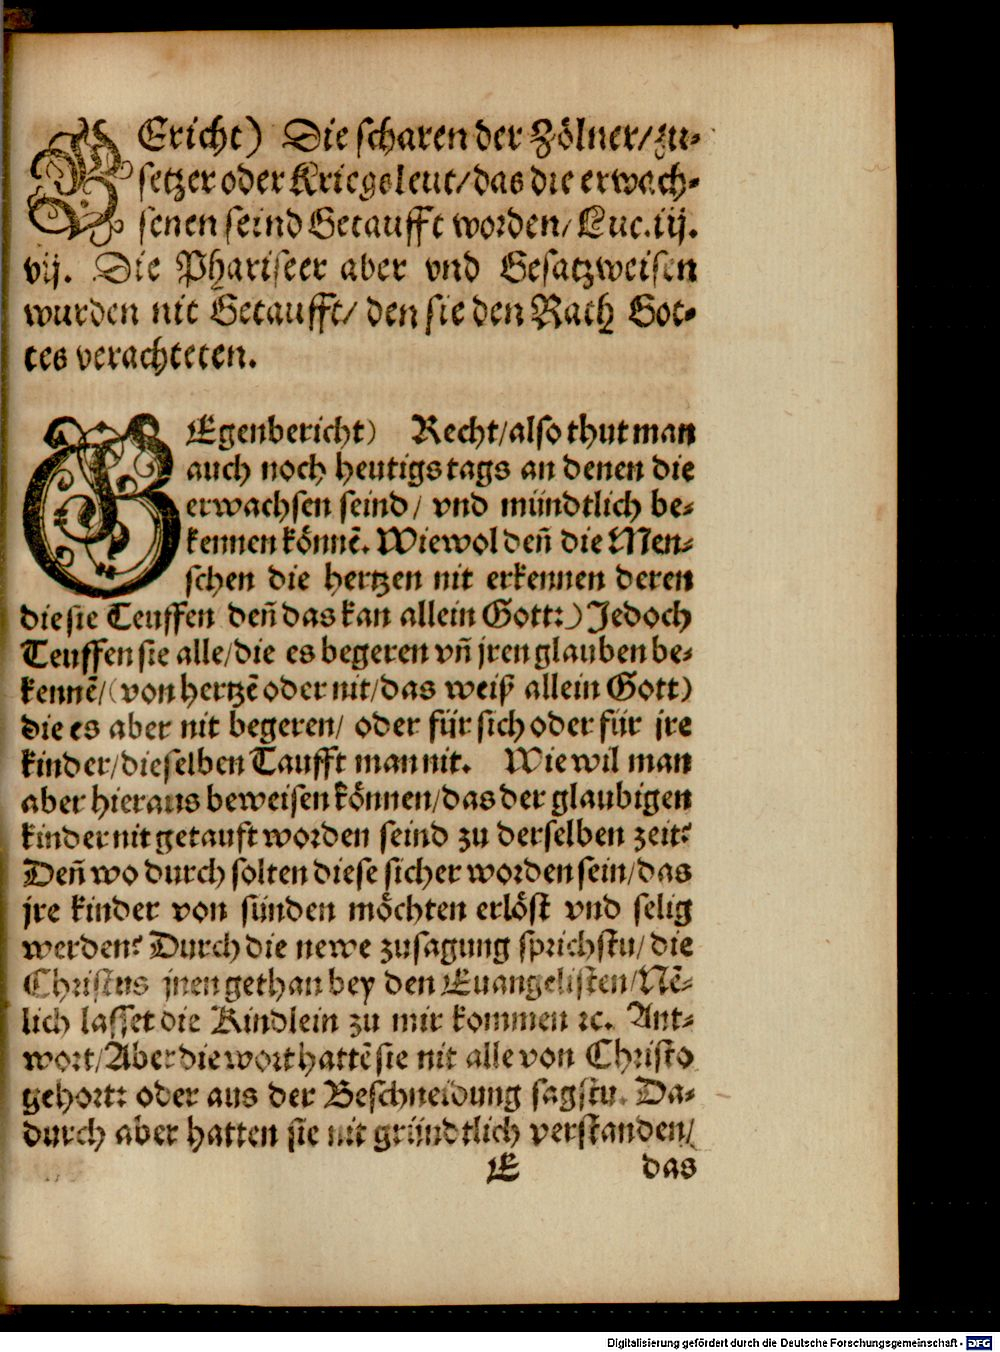 BEricht) Die scharen der Zölner/zu-
setzer oder Kriegsleut/das die erwach-
senen seind Getaufft worden/Luc.iij.
vij. Die Phariseer aber vnd Gesatzweisen
wurden nit Getaufft/ den sie den Rath Got-
tes verachteten.
GEgenbericht) Recht/also thut man
auch noch heutigs tags an denen die
erwachsen seind/ vnd mündtlich be-
kennen könnē. Wiewol deñ die Men-
schen die hertzen nit erkennen deren
die sie Teuffen deñ das kan allein Gott:) Jedoch
Teuffen sie alle/die es begeren vñ jren glauben be-
kennē/(von hertzē oder nit/das weiß allein Gott)
die es aber nit begeren/ oder für sich oder für jre
kinder/dieselben Taufft man nit. Wie wil man
aber hieraus beweisen können/das der glaubigen
kinder nit getauft worden seind zu derselben zeit?
Deñ wo durch solten diese sicher worden sein/das
jre kinder von sünden möchten erlöst vnd selig
werden? Durch die newe zusagung sprichstu/die
Christus jnen gethan bey den Euangelisten/Nē-
lich lasset die Kindlein zu mir kommen ꝛc. Ant-
wort/Aber die wort hattē sie nit alle von Christo
gehort: oder aus der Beschneidung sagstu. Da-
durch aber hatten sie nit gründtlich verstanden/
E das
Digitalisierung gefördert durch die Deutsche Forschungsgemeinschaft - DFG